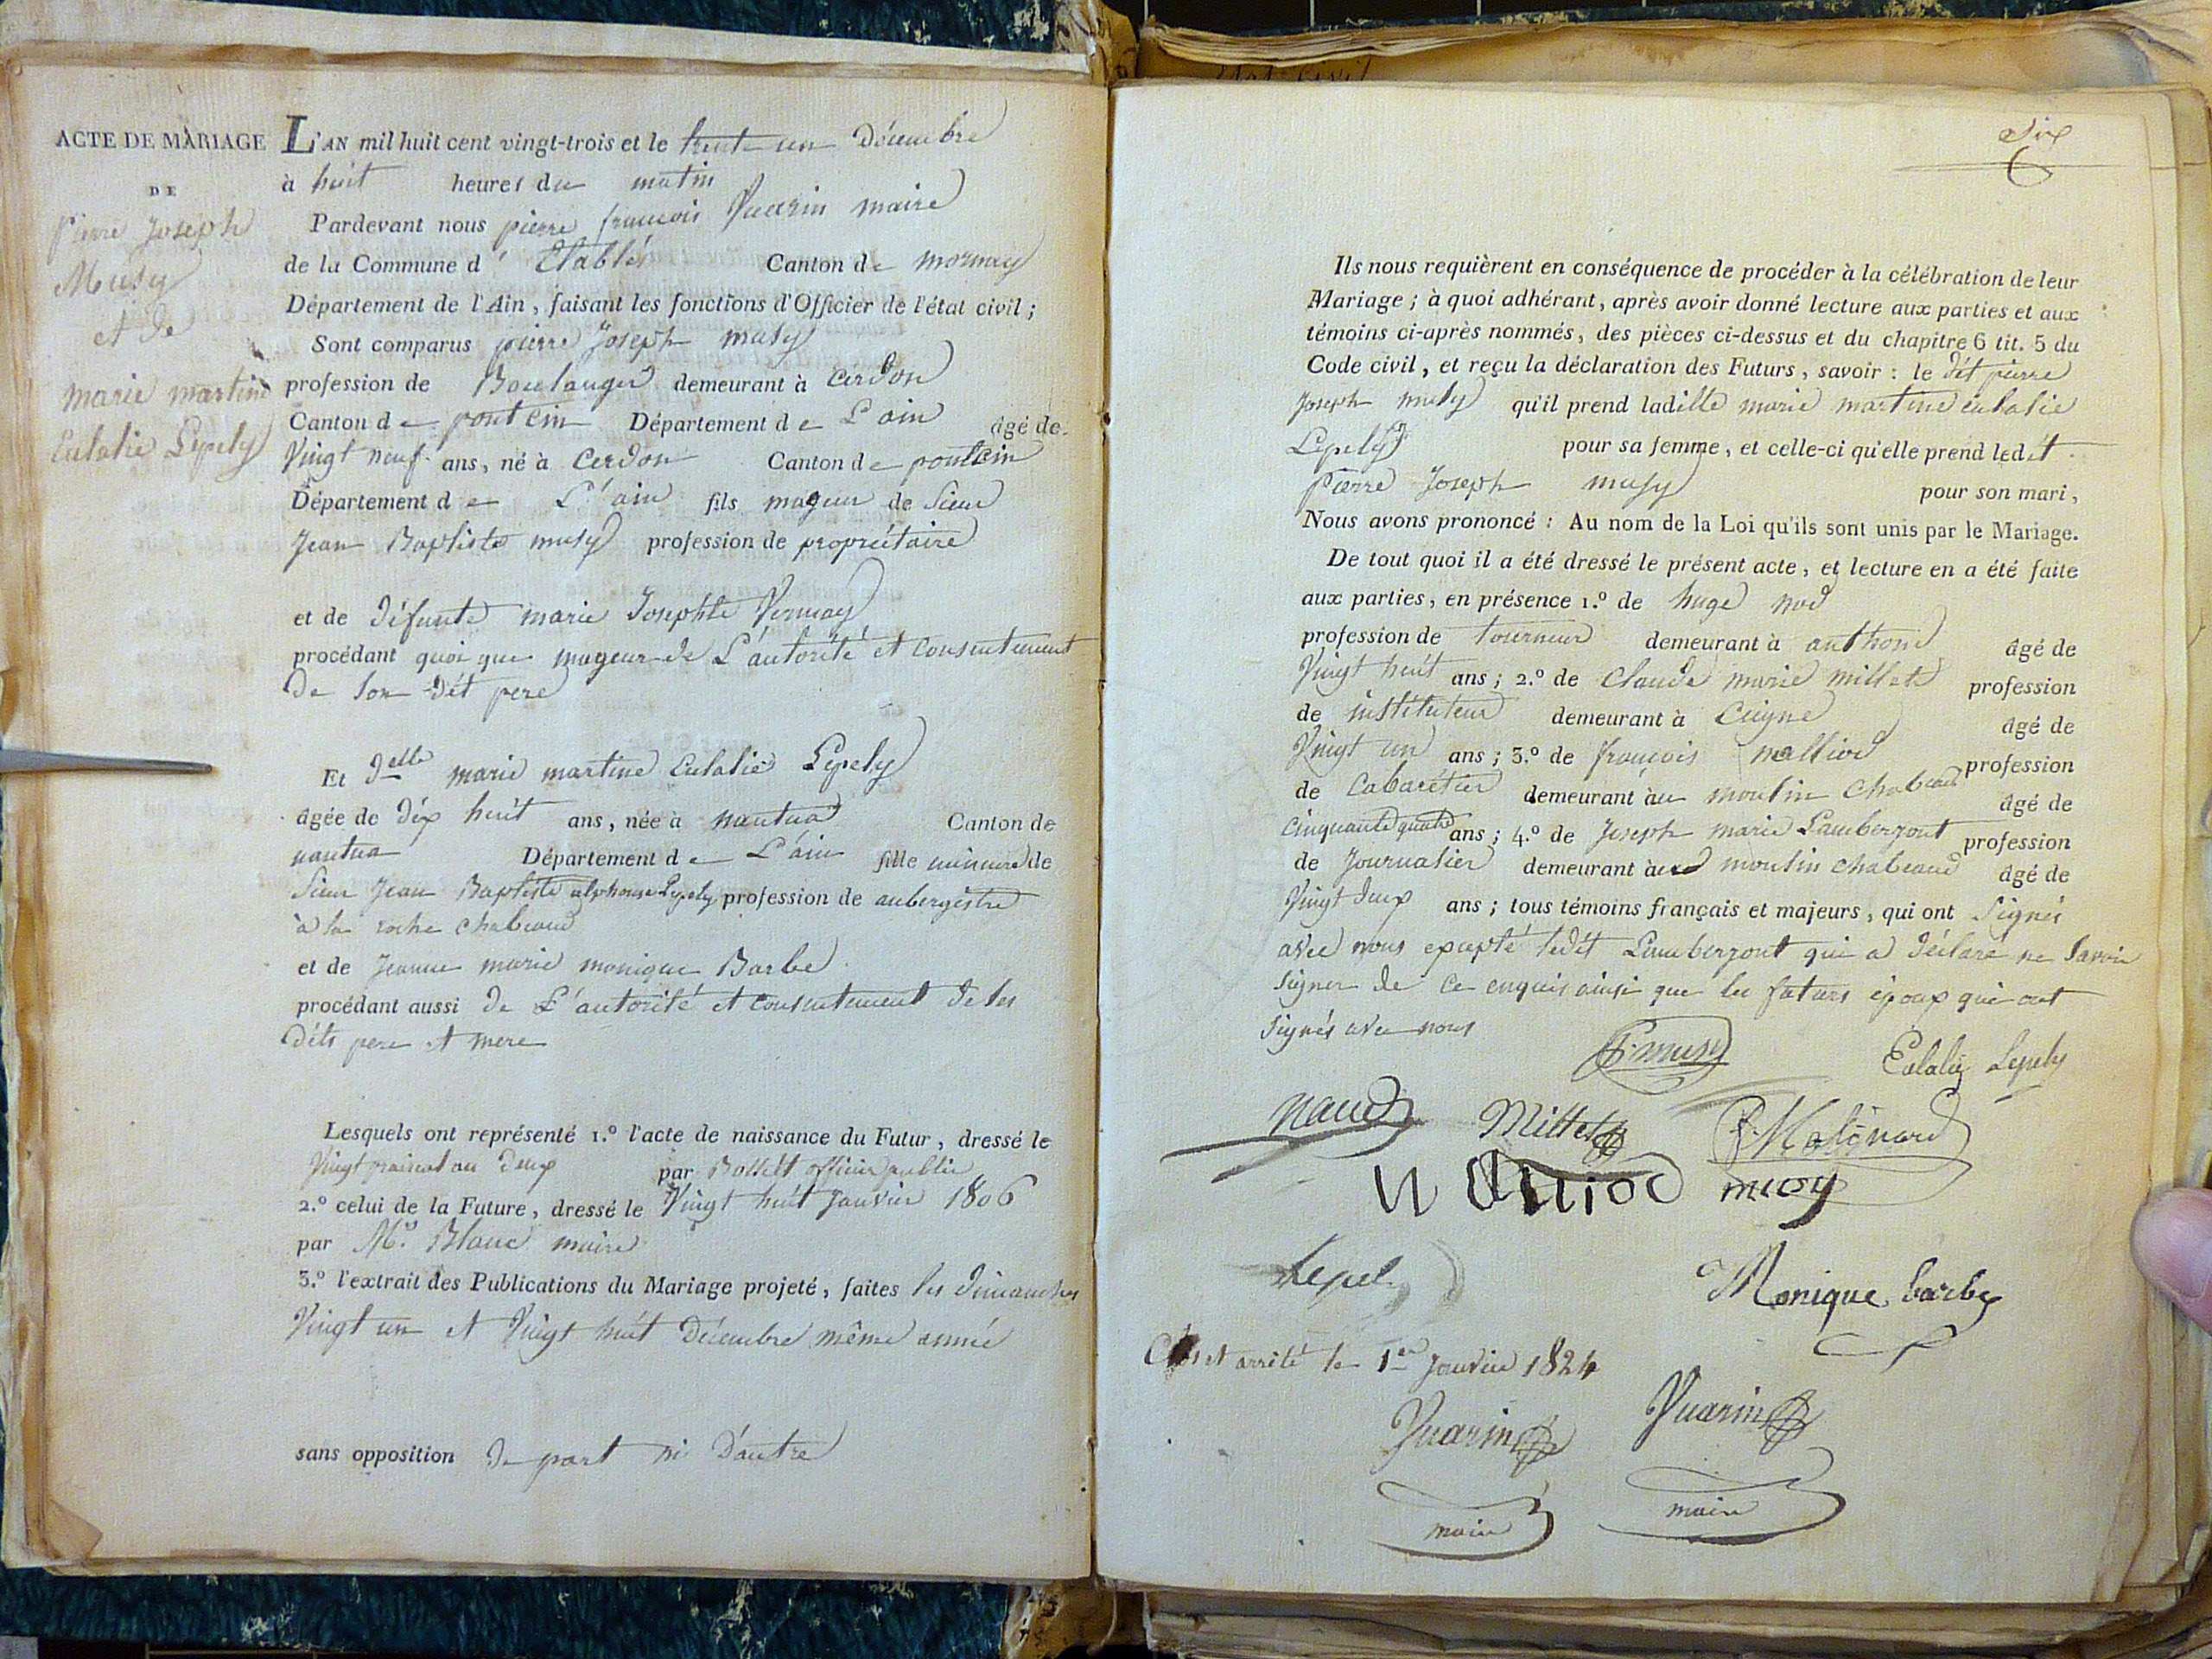 ACTE DE MARIAGE
DE
Pierre Joseph
Musy
et de
marie martine
Eulalie Lepely
L'AN mil huit cent vingt-trois et le trente un Décembre
à huit heures du matin
Pardevant nous pierre françois Vuarin maire
de la Commune d' Etables Canton de mornay
Département de l'Ain, faisant les fonctions d'Officier de l'état civil;
Sont comparus pierre Joseph musy
profession de Boulanger demeurant à Cerdon
Canton de pontein Département de L'ain âgé de
Vingt neuf ans, né à Cerdon Canton de pontein
Département de L'ain fils mageur de Sieur
Jean Baptiste musy profession de propriétaire
et de défunte marie Josephte Vernay
procédant quoi que mageur de L'autorité et Consentement
de son dét pere
Et delle marie martine Eulalie Lepely
âgée de dix huit ans, née à nantua Canton de
nantua Département de L'ain fille mineure de
Sieur Jean Baptiste alphonse Lepely profession de aubergiste
à la roche chabeaud
et de Jeanne marie monique Barbe
procédant aussi de L'autorité et consentement de ses
déts pere et mere
Lesquels ont représenté 1.º l'acte de naissance du Futur, dressé le
Vingt prairial an deux par officier public
2.º celui de la Future, dressé le Vingt huit Janvier 1806
par Mr. Blanc maire
3.º l'extrait des Publications du Mariage projeté, faites les dimanches
Vingt un et Vingt huit Décembre même année
sans opposition de part ni D'autre
Six
Ils nous requièrent en conséquence de procéder à la célébration de leur
Mariage; à quoi adhérant, après avoir donné lecture aux parties et aux
témoins ci-après nommés, des pièces ci-dessus et du chapitre 6 tit. 5 du
Code civil, et reçu la déclaration des Futurs, savoir: le dét pierre
Joseph musy qu'il prend ladille marie martine eulalie
Lepely pour sa femme, et celle-ci qu'elle prend ledét
Pierre Joseph musy pour son mari,
Nous avons prononcé: Au nom de la Loi qu'ils sont unis par le Mariage.
De tout quoi il a été dressé le présent acte, et lecture en a été faite
aux parties, en présence 1.º de huge
profession de tourneur demeurant à âgé de
Vingt huit ans; 2.º de Claude marie millet profession
de instituteur demeurant à Ceigne âgé de
Vingt un ans; 3.º de françois profession
de Cabarétier demeurant àu moulin Chabeaud âgé de
Cinquante quatre ans; 4.º de Joseph marie Lamberzont profession
de Journalier demeurant àu moulin chabeaud âgé de
Vingt deux ans; tous témoins français et majeurs, qui ont Signés
avec nous excepté ledét Lamberzont qui a déclaré ne Savoir
signer de ce enquis ainsi que les futurs époux qui ont
signés avec nous
P. musy Eulalie Lepely
Millet
musy
Lepel
Monique barbe
Clos et arrêté le 1er Janvier 1824
Vuarin Vuarin
maire maire